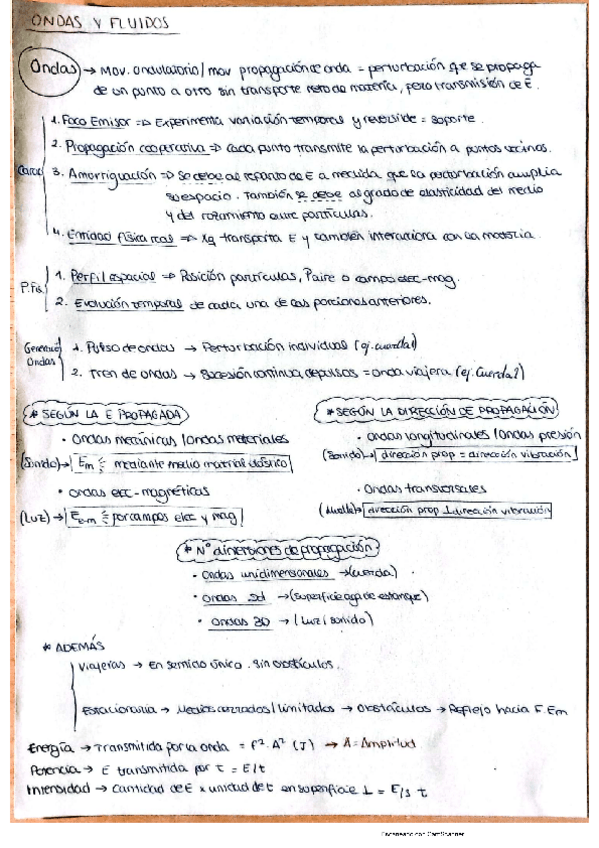 ONDAS Y FLUIDOS
Ondas → Mov. ondulatorio/mov propagación de onda = perturbación que se propaga
de un punto a otro sin transporte neto de materia, pero transmisión de E.
1. Foco Emisor => Experimenta variación temporal y reversible = soporte.
2. Propagación cooperativa => cada punto transmite la perturbación a puntos vecinos.
Caract 3. Amortiguación => se debe al reparto de E a medida que la perturbación amplia
su espacio. También se debe al grado de elasticidad del medio
y del rozamiento entre partículas.
4. Entidad física real => xq transporta E y también interacciona con la materia.
1. Perfil espacial => Posición partículas, P aire o campo elec-mag.
P.Fís
2. Evolución temporal de cada una de las porciones anteriores.
Generación Ondas
1. Pulso de ondas → Perturbación individual (ej. cuerda 1)
2. Tren de ondas → Sucesión continua de pulsos = onda viajera (ej. Cuerda 2)
* SEGÚN LA E PROPAGADA
• Ondas mecánicas/ondas materiales
(Sonido) → Em mediante medio material elástico
• Ondas elec-magnéticas
(Luz) → Eem por campos elec y mag
* SEGÚN LA DIRECCIÓN DE PROPAGACIÓN
• Ondas longitudinales/ondas presión
(Sonido) → dirección prop = dirección vibración
• Ondas transversales
(Muelle) → dirección prop ⊥ dirección vibración
* Nº dimensiones de propagación
• Ondas unidimensionales → (cuerda)
• Ondas 2d → (superficie agua de estanque)
• Ondas 3D → (Luz/sonido)
* ADEMÁS
Viajeras → En sentido único. Sin obstáculos.
Estacionaria → Medios cerrados/limitados → Obstáculos → Reflejo hacia F. Em
Energía → Transmitida por la onda = f². A² (J) → A = Amplitud
Potencia → E transmitida por t = E/t
Intensidad → Cantidad de E x unidad de t en superficie ⊥ = E/s t
Escaneado con CamScanner